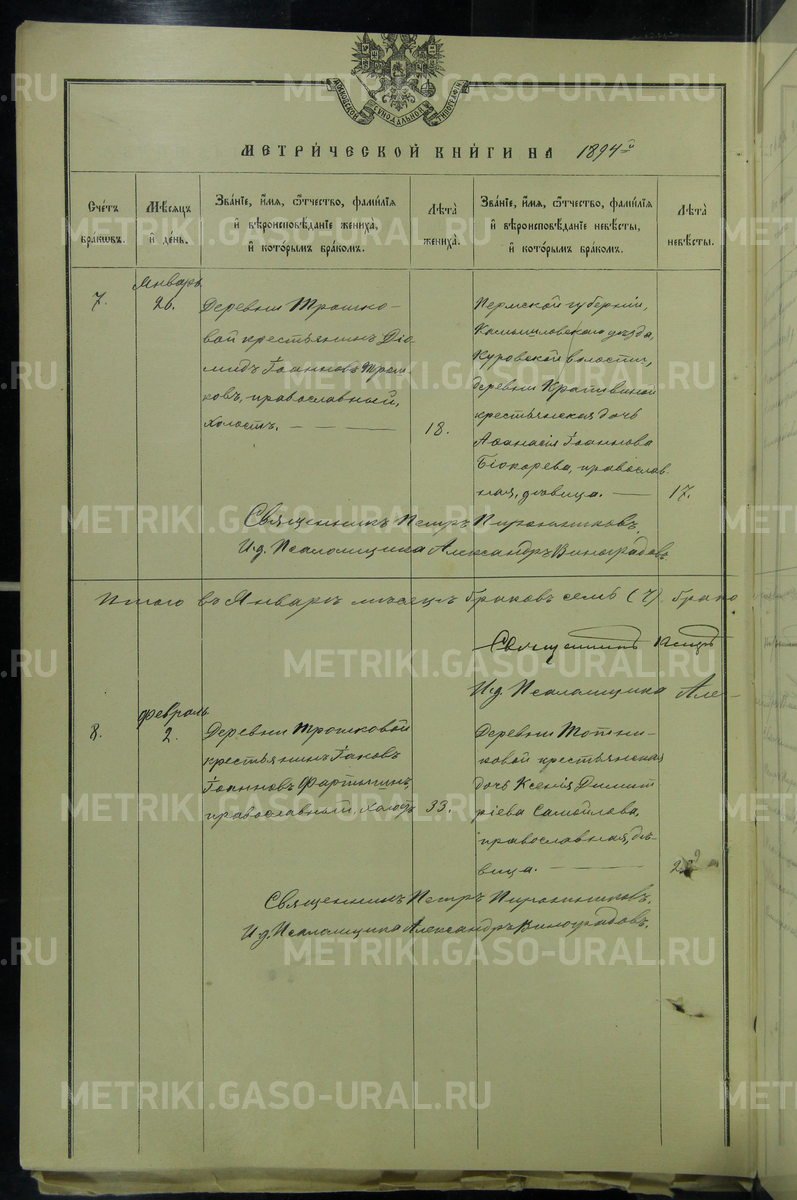 МОСКОВСКОЙ СѴНОДАЛЬНОЙ ТИПОГРАФІИ
МЕТРИ́ЧЕСКОЙ КНИ́ГИ НА 1894й
Сче́тъ
бракѡвъ.
Мѣ́сѧцъ
и҆ де́нь.
Зва́нїе, и҆́мѧ, ѻ҆́тчество, фами́лїѧ
и҆ вѣроисповѣ́данїе жениха̀,
и҆ кото́рымъ бра́комъ.
Лѣта̀
жениха̀.
Зва́нїе, и҆́мѧ, ѻ҆́тчество, фами́лїѧ
и҆ вѣроисповѣ́данїе невѣ́сты,
и҆ кото́рымъ бра́комъ.
Лѣта̀
невѣ́сты.
7.
Январь
26.
Деревни Трошко-
вой крестьянинъ Діо
мидъ Іоанновъ Трош
ковъ, православный,
холостъ.
18.
Пермской губерніи,
Камышловскаго уѣзда,
Куровской волости,
деревни Крапивиной
крестьянская дочь
Аѳанасія Іоаннова
православ
ная, дѣвица.
17.
Священникъ Петръ
И.д. Псаломщика Александръ Виноградовъ.
Итого въ Январѣ мѣсяцѣ браковъ семь (7) брако
Священникъ Петръ
И.д. Псаломщика Але-
8.
Февраль
2.
Деревни Трошковой
крестьянинъ Іаковъ
Іоанновъ Фартыгинъ,
православный, холостъ
33.
Деревни
ковой крестьянская
дочь Ксенія Димит
ріева Самойлова,
православная, дѣ-
вица.
Священникъ Петръ
И.д. Псаломщика Александръ Виноградовъ.
METRIKI.GASO-URAL.RU